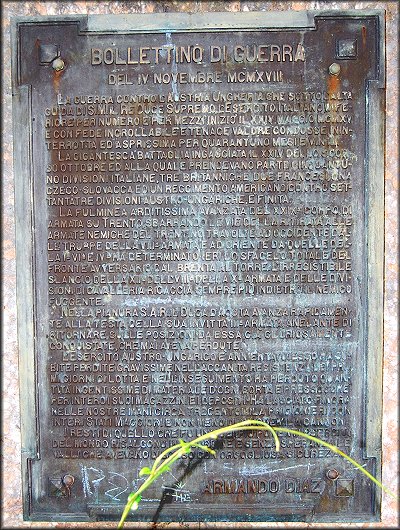 BOLLETTINO DI GUERRA
DEL IV NOVEMBRE MCMXVIII
LA GUERRA CONTRO L'AUSTRIA UNGHERIA CHE SOTTO L'ALTA
GUIDA DI S.M. IL RE DUCE SUPREMO L'ESERCITO ITALIANO INFE
RIORE PER NUMERO E PER MEZZI INIZIÒ IL XXIV MAGGIO MCMXV
E CON FEDE INCROLLABILE E TENACE VALORE CONDUSSE ININ
TERROTTA ED ASPRISSIMA PER QUARANTUNO MESI È VINTA.
LA GIGANTESCA BATTAGLIA INGAGGIATA IL XXIV DELLO SCOR
SO OTTOBRE ED ALLA QUALE PRENDEVANO PARTE CINQUANTU
NO DIVISIONI ITALIANE, TRE BRITANNICHE DUE FRANCESI UNA
CZECO-SLOVACCA ED UN REGGIMENTO AMERICANO CONTRO SET
TANTATRE DIVISIONI AUSTRO-UNGARICHE, È FINITA.
LA FULMINEA ARDITISSIMA AVANZATA DEL XXIX CORPO DI
ARMATA SU TRENTO, SBARRANDO LE VIE DELLA RITIRATA ALLE
ARMATE NEMICHE DEL TRENTINO TRAVOLTE AD OCCIDENTE DAL
LE TRUPPE DELLA VII ARMATA E AD ORIENTE DA QUELLE DEL
LA I VI E IV HA DETERMINATO IERI LO SFACELO TOTALE DEL
FRONTE AVVERSARIO. DAL BRENTA AL TORRE L'IRRESISTIBILE
SLANCIO DELLA XII DELL'VIII DELLA X ARMATA E DELLE DIVI
SIONI DI CAVALLERIA RICACCIA SEMPRE PIÙ INDIETRO IL NEMICO
FUGGENTE.
NELLA PIANURA S.A.R. IL DUCA D'AOSTA AVANZA RAPIDAMEN
TE ALLA TESTA DELLA SUA INVITTA III ARMATA ANELANTE DI
RITORNARE SULLE POSIZIONI DA ESSA GIÀ GLORIOSAMENTE
CONQUISTATE CHE MAI AVEVA PERDUTE.
L'ESERCITO AUSTRO-UNGARICO È ANNIENTATO ESSO HA SU
BITE PERDITE GRAVISSIME NELL'ACCANITA RESISTENZA DEI PRI
MI GIORNI DI LOTTA E NELL'INSEGUIMENTO HA PERDUTO QUAN
TITÀ INGENTISSIME DI MATERIALE DI OGNI SORTA E PRESSOCHÈ
PER INTERO I SUOI MAGAZZINI E DEPOSITI. HA LASCIATO FINORA
NELLE NOSTRE MANI CIRCA TRECENTOMILA PRIGIONIERI CON
INTERI STATI MAGGIORI E NON MENO DI CINQUEMILA CANNONI.
I RESTI DI QUELLO CHE FU
DEL MONDO
VALLI CHE AVEVANO DISCESO CON ORGOGLIOSA SICUREZZA
ARMANDO DIAZ